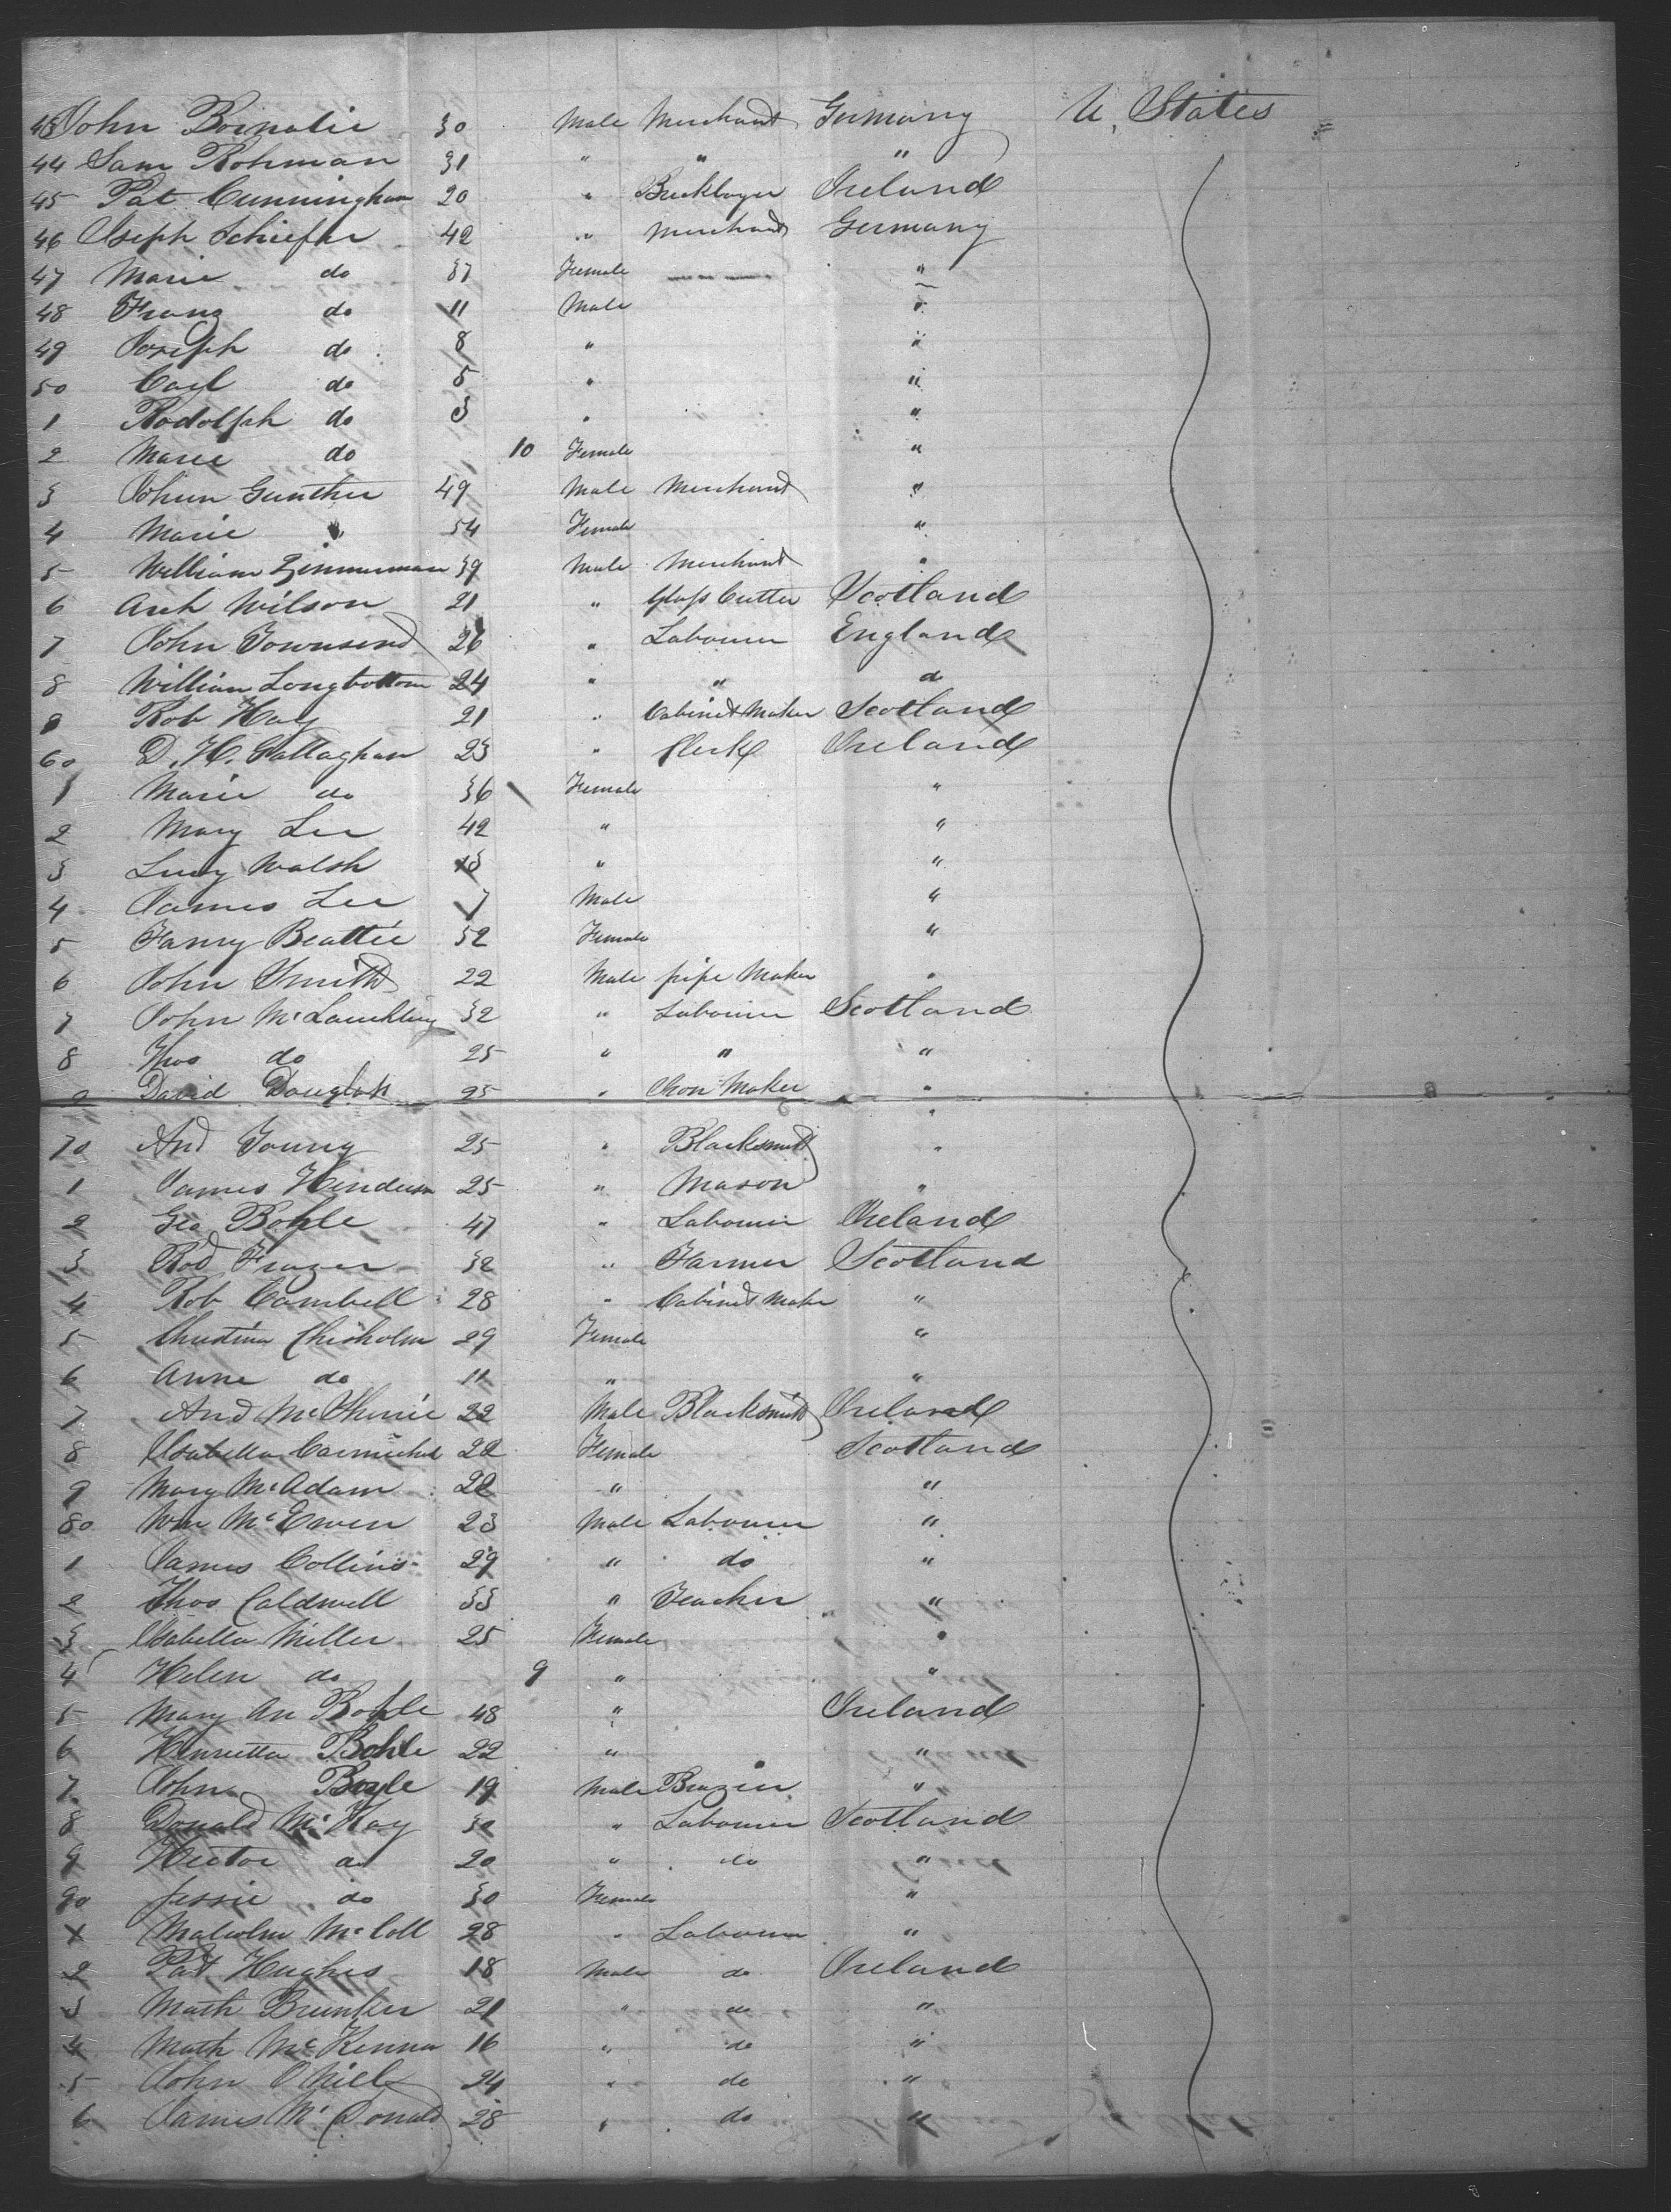 43 John Bornatie 30 Male Merchant Germany U. States
44 Sam Rohman 31 " " "
45 Pat Cunningham 20 " Bricklayer Ireland
46 Joseph Schiefer 42 " Merchant Germany
47 Marie do 37 Female "
48 Franz do 11 Male "
49 Joseph do 8 " "
50 Carl do 5 " "
1 Rodolph do 3 " "
2 Marie do 10 Female "
3 Johun Gunther 49 Male Merchant "
4 Marie " 54 Female "
5 William Zimmerman 39 Male Merchant "
6 Arch Wilson 21 " Glass Cutter Scotland
7 John Townsend 26 " Labourer England
8 William Longbottom 24 " " do
9 Rob Hay 21 " Cabinet Maker Scotland
60 D. H. Gallaghan 23 " Clerk Ireland
1 Marie do 36 Female "
2 Mary Lee 42 " "
3 Lucy Walsh 13 " "
4 James Lee 7 Male "
5 Fanny Beattie 52 Female "
6 John Smith 22 Male pipe Maker "
7 John McLauchling 32 " Labourer Scotland
8 Thos do 25 " " "
9 David Douglas 25 " Iron Maker "
70 And Young 25 " Blacksmith "
1 James Henderson 25 " Mason "
2 Geo Bohle 47 " Labourer Ireland
3 Rod Frazer 32 " Farmer Scotland
4 Rob Cambell 28 " Cabinet Maker "
5 Christina Chisholm 29 Female "
6 Anne do 11 " "
7 And 22 Male Blacksmith Ireland
8 Isabella Carmichal 22 Female Scotland
9 Mary McAdam 22 " "
80 Wm McEwen 23 Male Labourer "
1 James Collins 29 " do "
2 Thos Caldwell 33 " Teacher "
3 Isabella Miller 25 Female "
4 Helen do 9 " "
5 Mary An Bohle 48 " Ireland
6 Henrietta Bohle 22 " "
7 John Boyle 19 Male Brazier "
8 Donald McKay 30 " Labourer Scotland
9 Hector do 20 " do "
90 Jessie do 30 Female "
X Malcolm McColl 28 " Labourer "
2 Pat Hughes 18 Male do Ireland
3 Math Brunker 21 " do "
4 Math McKenna 16 " do "
5 John O'Niel 24 " do "
6 James McDonald 28 " do "